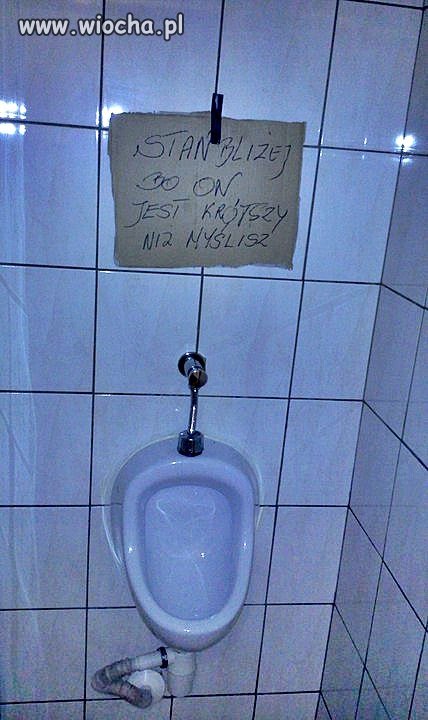 www.wiocha.pl
STAŃ BLIŻEJ
BO ON
JEST KRÓTSZY
NIŻ MYŚLISZ